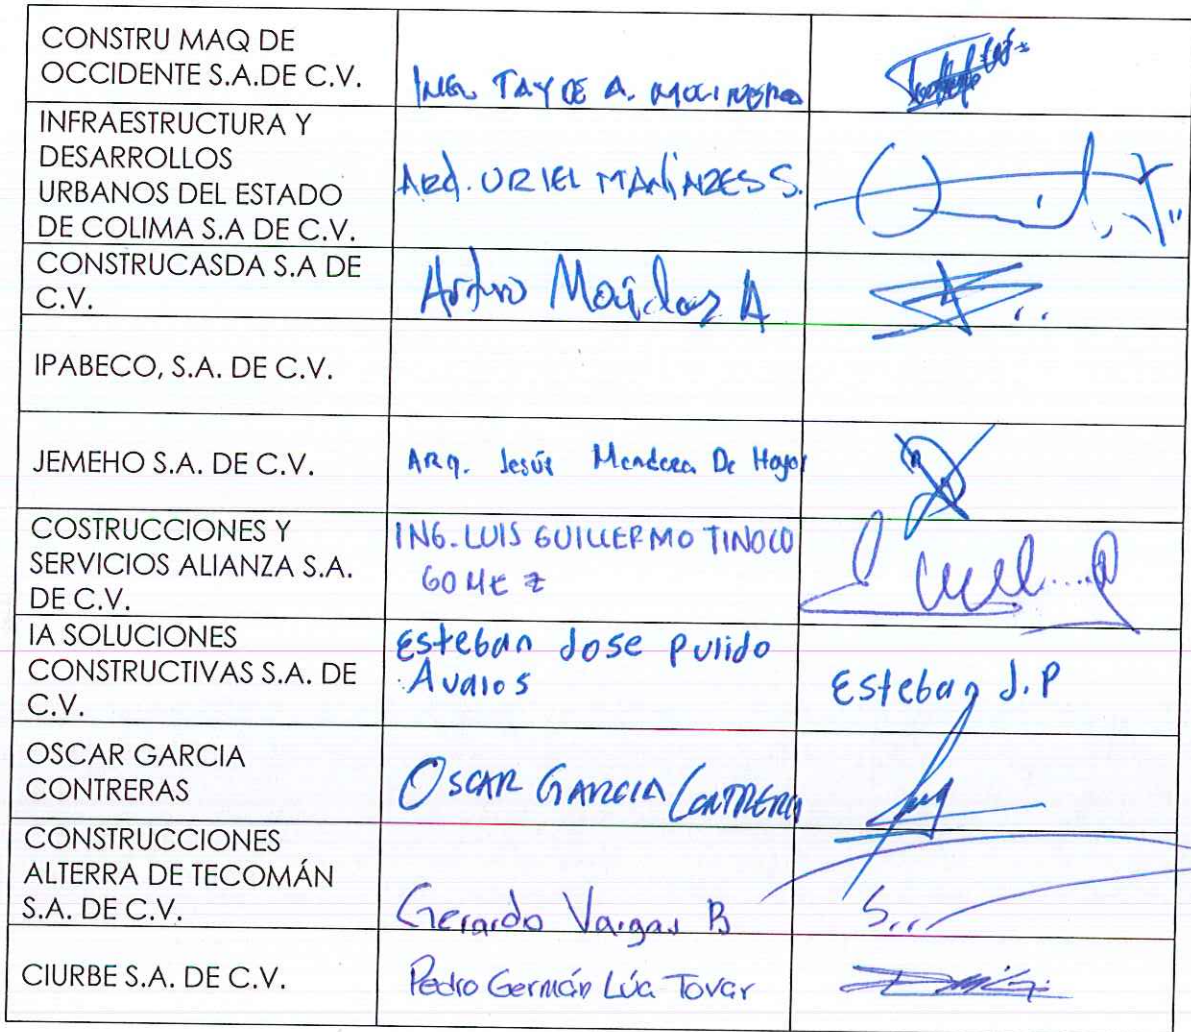 CONSTRU MAQ DE
OCCIDENTE S.A.DE C.V.
ING. TAYDE A.
INFRAESTRUCTURA Y
DESARROLLOS
URBANOS DEL ESTADO
DE COLIMA S.A DE C.V.
ARQ. URIEL S.
CONSTRUCASDA S.A DE
C.V.
Arturo A
IPABECO, S.A. DE C.V.
JEMEHO S.A. DE C.V.
ARQ. Jesús Mendoza De Hoyos
COSTRUCCIONES Y
SERVICIOS ALIANZA S.A.
DE C.V.
ING. LUIS GUILLERMO TINOCO
GOMEZ
IA SOLUCIONES
CONSTRUCTIVAS S.A. DE
C.V.
Esteban Jose Pulido
Avalos
Esteban J.P
OSCAR GARCIA
CONTRERAS
OSCAR GARCIA CONTRERAS
CONSTRUCCIONES
ALTERRA DE TECOMÁN
S.A. DE C.V.
Gerardo Vargas B
CIURBE S.A. DE C.V.
Pedro Germán Lúa Tovar